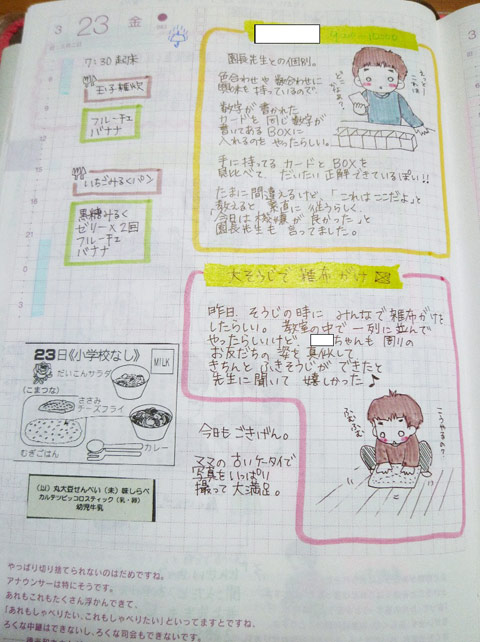 3 23 金
7:30 起床
玉子雑炊
フルーチェ
バナナ
いちごみるくパン
黒糖みるく
ゼリー×2回
フルーチェ
バナナ
9
12
15
18
21
0
3
園長先生との個別。
色合わせや数合わせに
興味も持っているので、
数字が書かれた
カードを同じ数字が
書いてあるBOXに
入れるのをやったらしい。
手に持ってるカードとBOXを
見比べて、だいたい正解できているぽい!!
たまに間違えるけど、「これはここだよ」と
教えると素直に従うらしく、
「今日は機嫌が良かった」と
園長先生も言ってました。
どこかな?
えっと
これは
大そうじで雑巾がけ
昨日、そうじの時にみんなで雑巾がけを
したらしい。教室の中で一列に並んで
やったらしいけど ちゃんも周りの
お友だちの姿を真似して
きちんとふきそうじができたと
先生に聞いて嬉しかった♪
今日もごきげん。
ママの古いケータイで
写真をいっぱい
撮って大満足。
ふむふむ
こうやるの?
23日《小学校なし》
MILK
だいこんサラダ
(こまつな)
ささみ
チーズフライ
カレー
むぎごはん
丸大豆せんべい(未)味しらべ
カルテツピッコロスティック(乳・卵)
幼児牛乳
やっぱり切り捨てられないのはだめですね。
アナウンサーは特にそうです。
あれもこれもたくさん浮かんできて、
「あれもしゃべりたい、これもしゃべりたい」といってますとですね、
ろくな中継はできないし、ろくな司会もできないです。